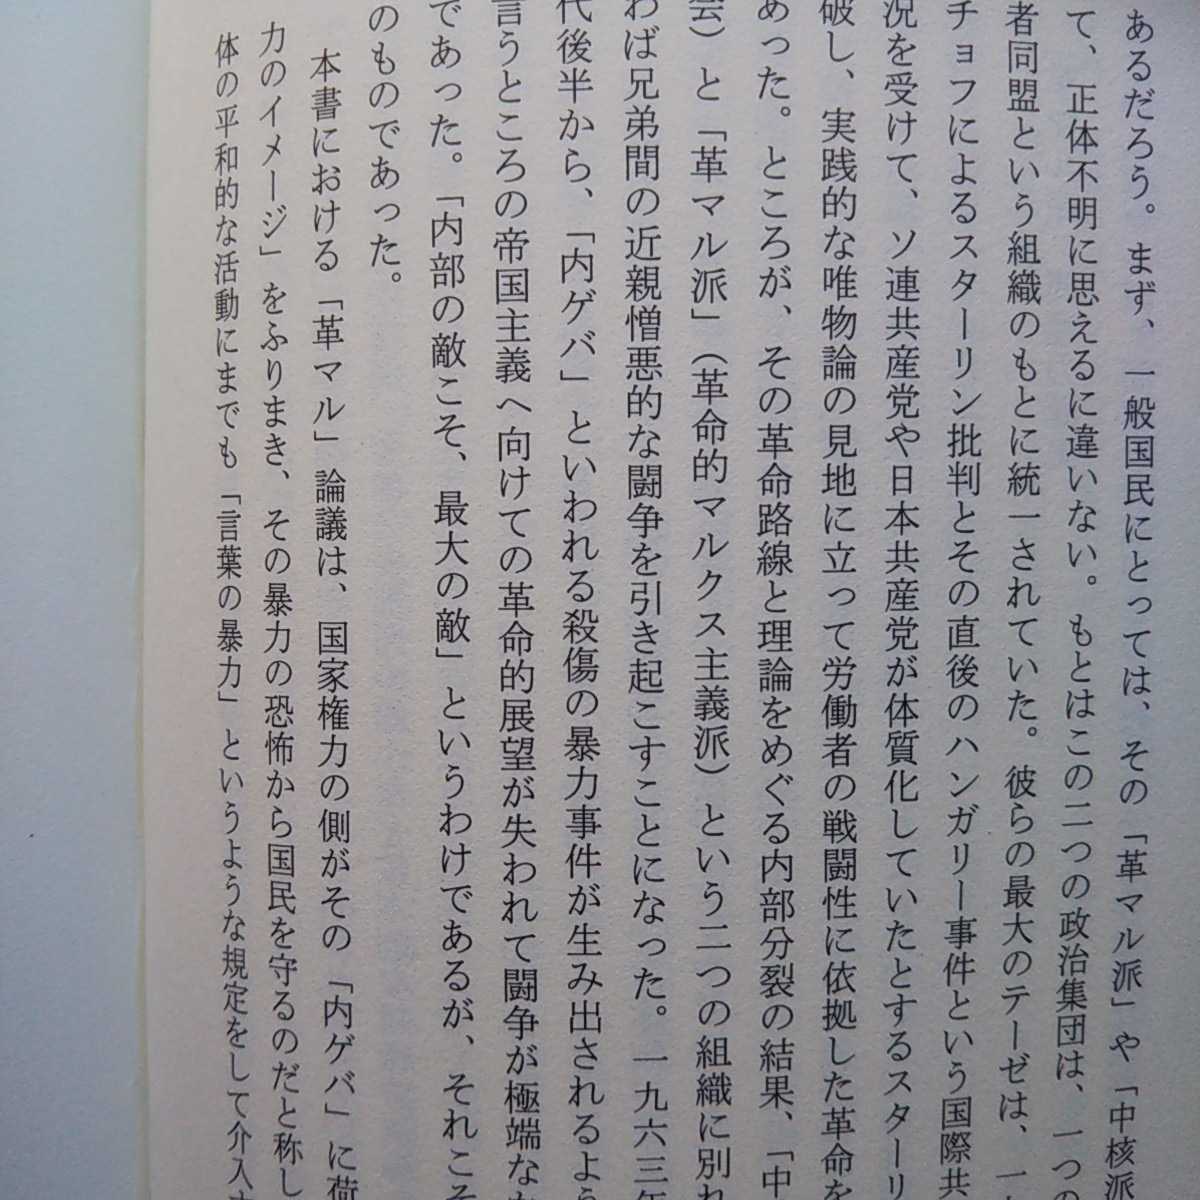 あるだろう。まず、一般国民にとっては、その「革マル派」や「中核派
て、正体不明に思えるに違いない。もとはこの二つの政治集団は、一つの
者同盟という組織のもとに統一されていた。彼らの最大のテーゼは、一
チョフによるスターリン批判とその直後のハンガリー事件という国際共
況を受けて、ソ連共産党や日本共産党が体質化していたとするスターリ
破し、実践的な唯物論の見地に立って労働者の戦闘性に依拠した革命を
あった。ところが、その革命路線と理論をめぐる内部分裂の結果、「中
会）と「革マル派」（革命的マルクス主義派）という二つの組織に別れ
わば兄弟間の近親憎悪的な闘争を引き起こすことになった。一九六三年
代後半から、「内ゲバ」といわれる殺傷の暴力事件が生み出されるよう
言うところの帝国主義へ向けての革命的展望が失われて闘争が極端なな
であった。「内部の敵こそ、最大の敵」というわけであるが、それこそ
のものであった。
本書における「革マル」論議は、国家権力の側がその「内ゲバ」に荷
力のイメージ」をふりまき、その暴力の恐怖から国民を守るのだと称し
体の平和的な活動にまでも「言葉の暴力」というような規定をして介入